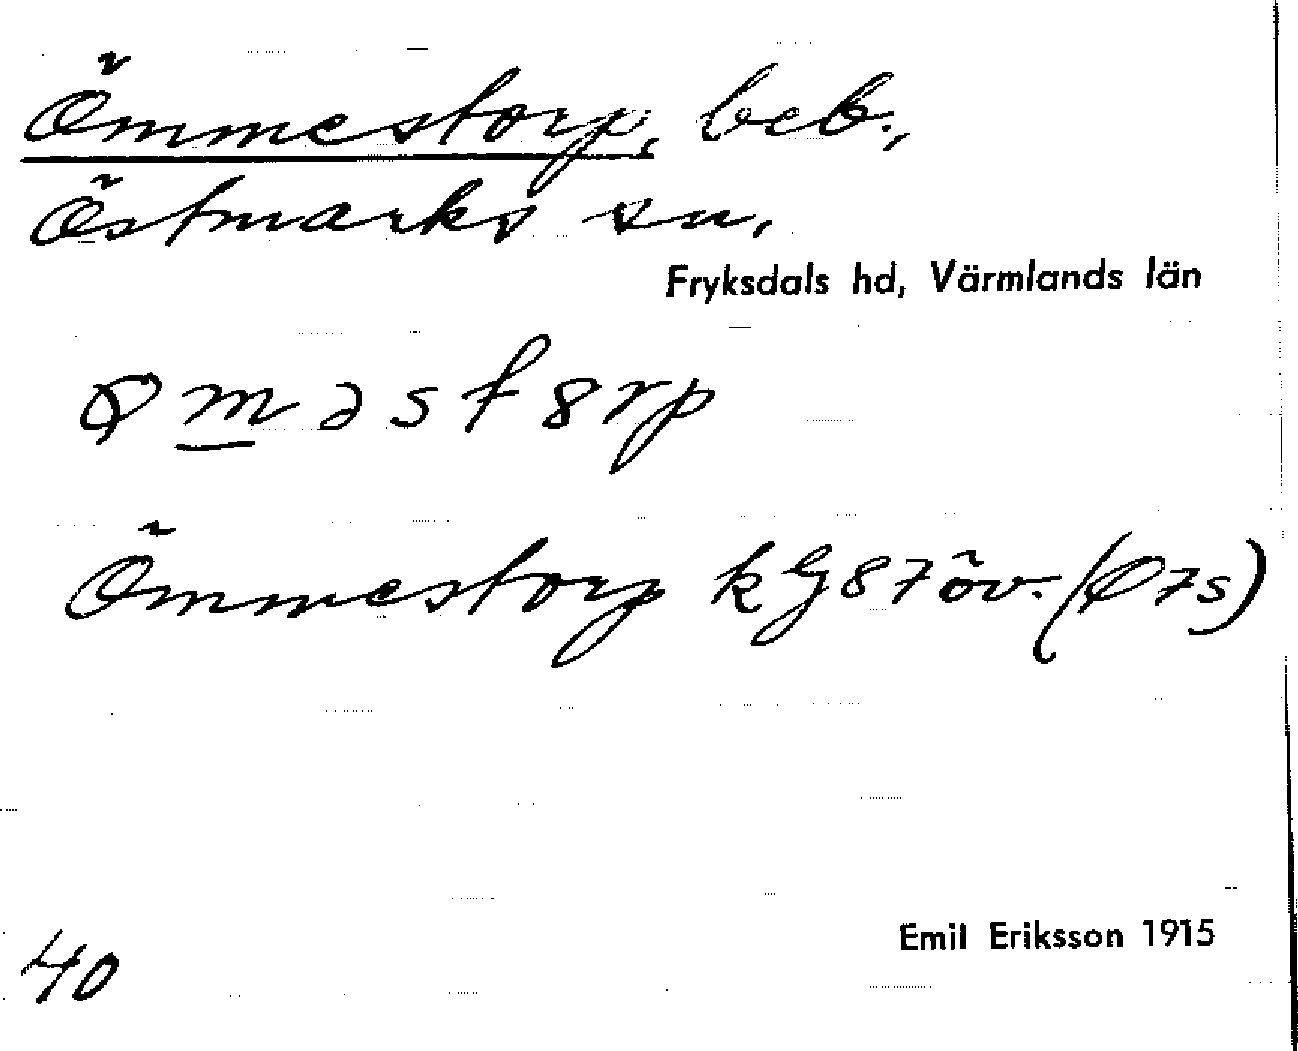 Ömmestorp, beb.,
Östmarks sn.
Fryksdals hd, Värmlands län
Ömmestorp kG87öv. (Ö7s)
40
Emil Eriksson 1915